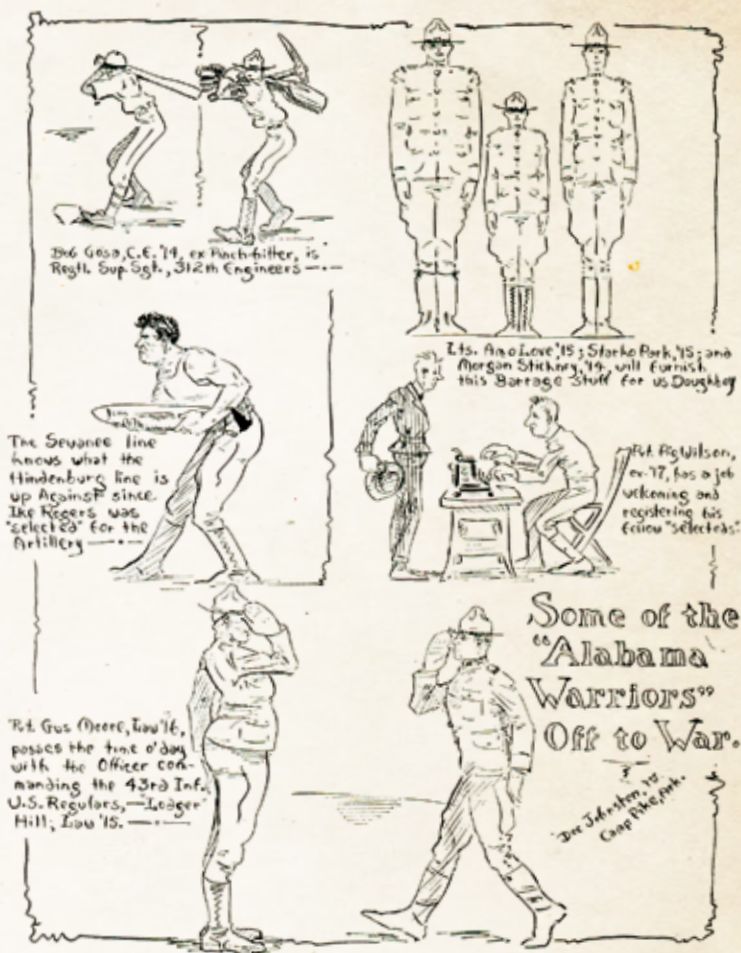 Bob Goss, C.E. '14, ex Pinch-hitter, is
Regtl. Sup. Sgt., 312th Engineers
Lts. Amo Love, '15; Starko Park, '15; and
Morgan Stickney, '14, will furnish
this Barrage Stuff for us Doughboy
The Sewanee line
knows what the
Hindenburg line is
up Against since
Ike Rogers was
"selected" for the
Artillery
Pvt. Pig Wilson,
ex-'17, has a job
welcoming and
registering his
fellow "selecteds".
Pvt. Gus Moore, Law '16,
passes the time o' day
with the Officer com-
manding the 43rd Inf.
U.S. Regulars,
Hill, Law '15.
Some of the
"Alabama
Warriors"
Off to War.
Doc Johnston, '17
Camp Pike, Ark.